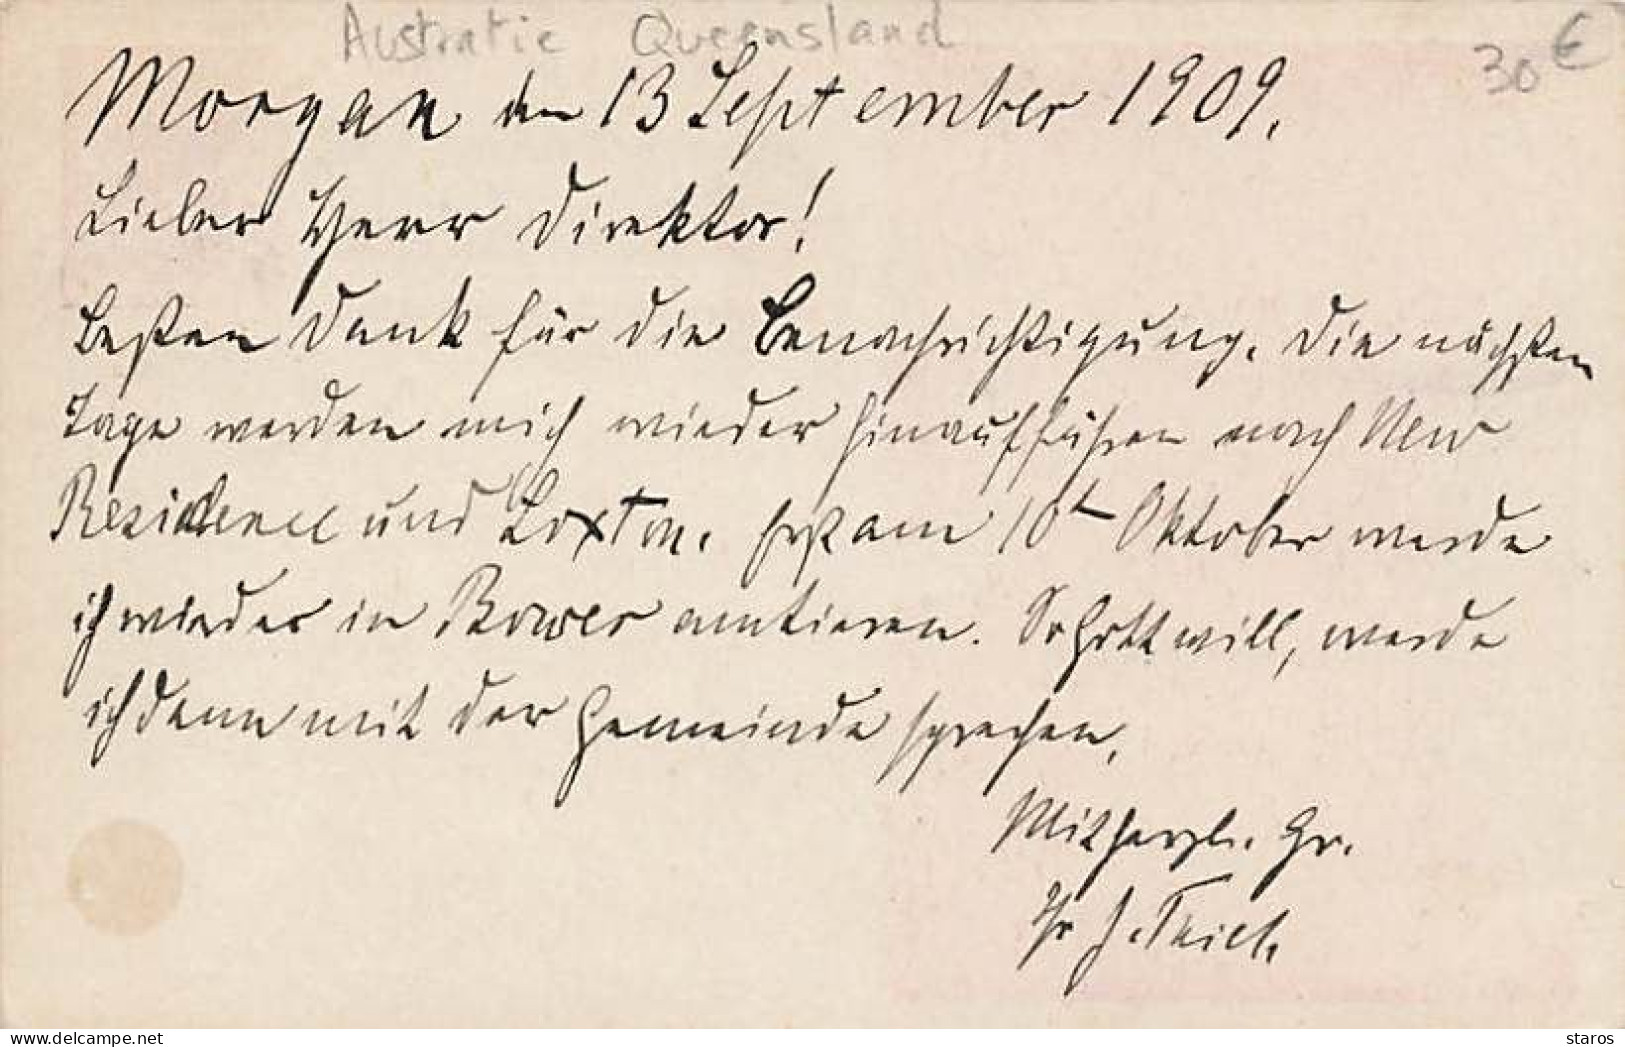 Australie Queensland
30 €
Morgan den 13 September 1909.
Lieber Herr Direktor!
Besten Dank für die Benachrichtigung. Die nächsten
Tage werden mich wieder hinaufführen nach New
Residence und Loxton. Erst am 10t Oktober werde
ich wieder in Bower amtieren. So Gott will, werde
ich dann mit der Gemeinde sprechen.
Mit herzl. Gr.
Ihr J. Thiel.
Delcampe.net
staros